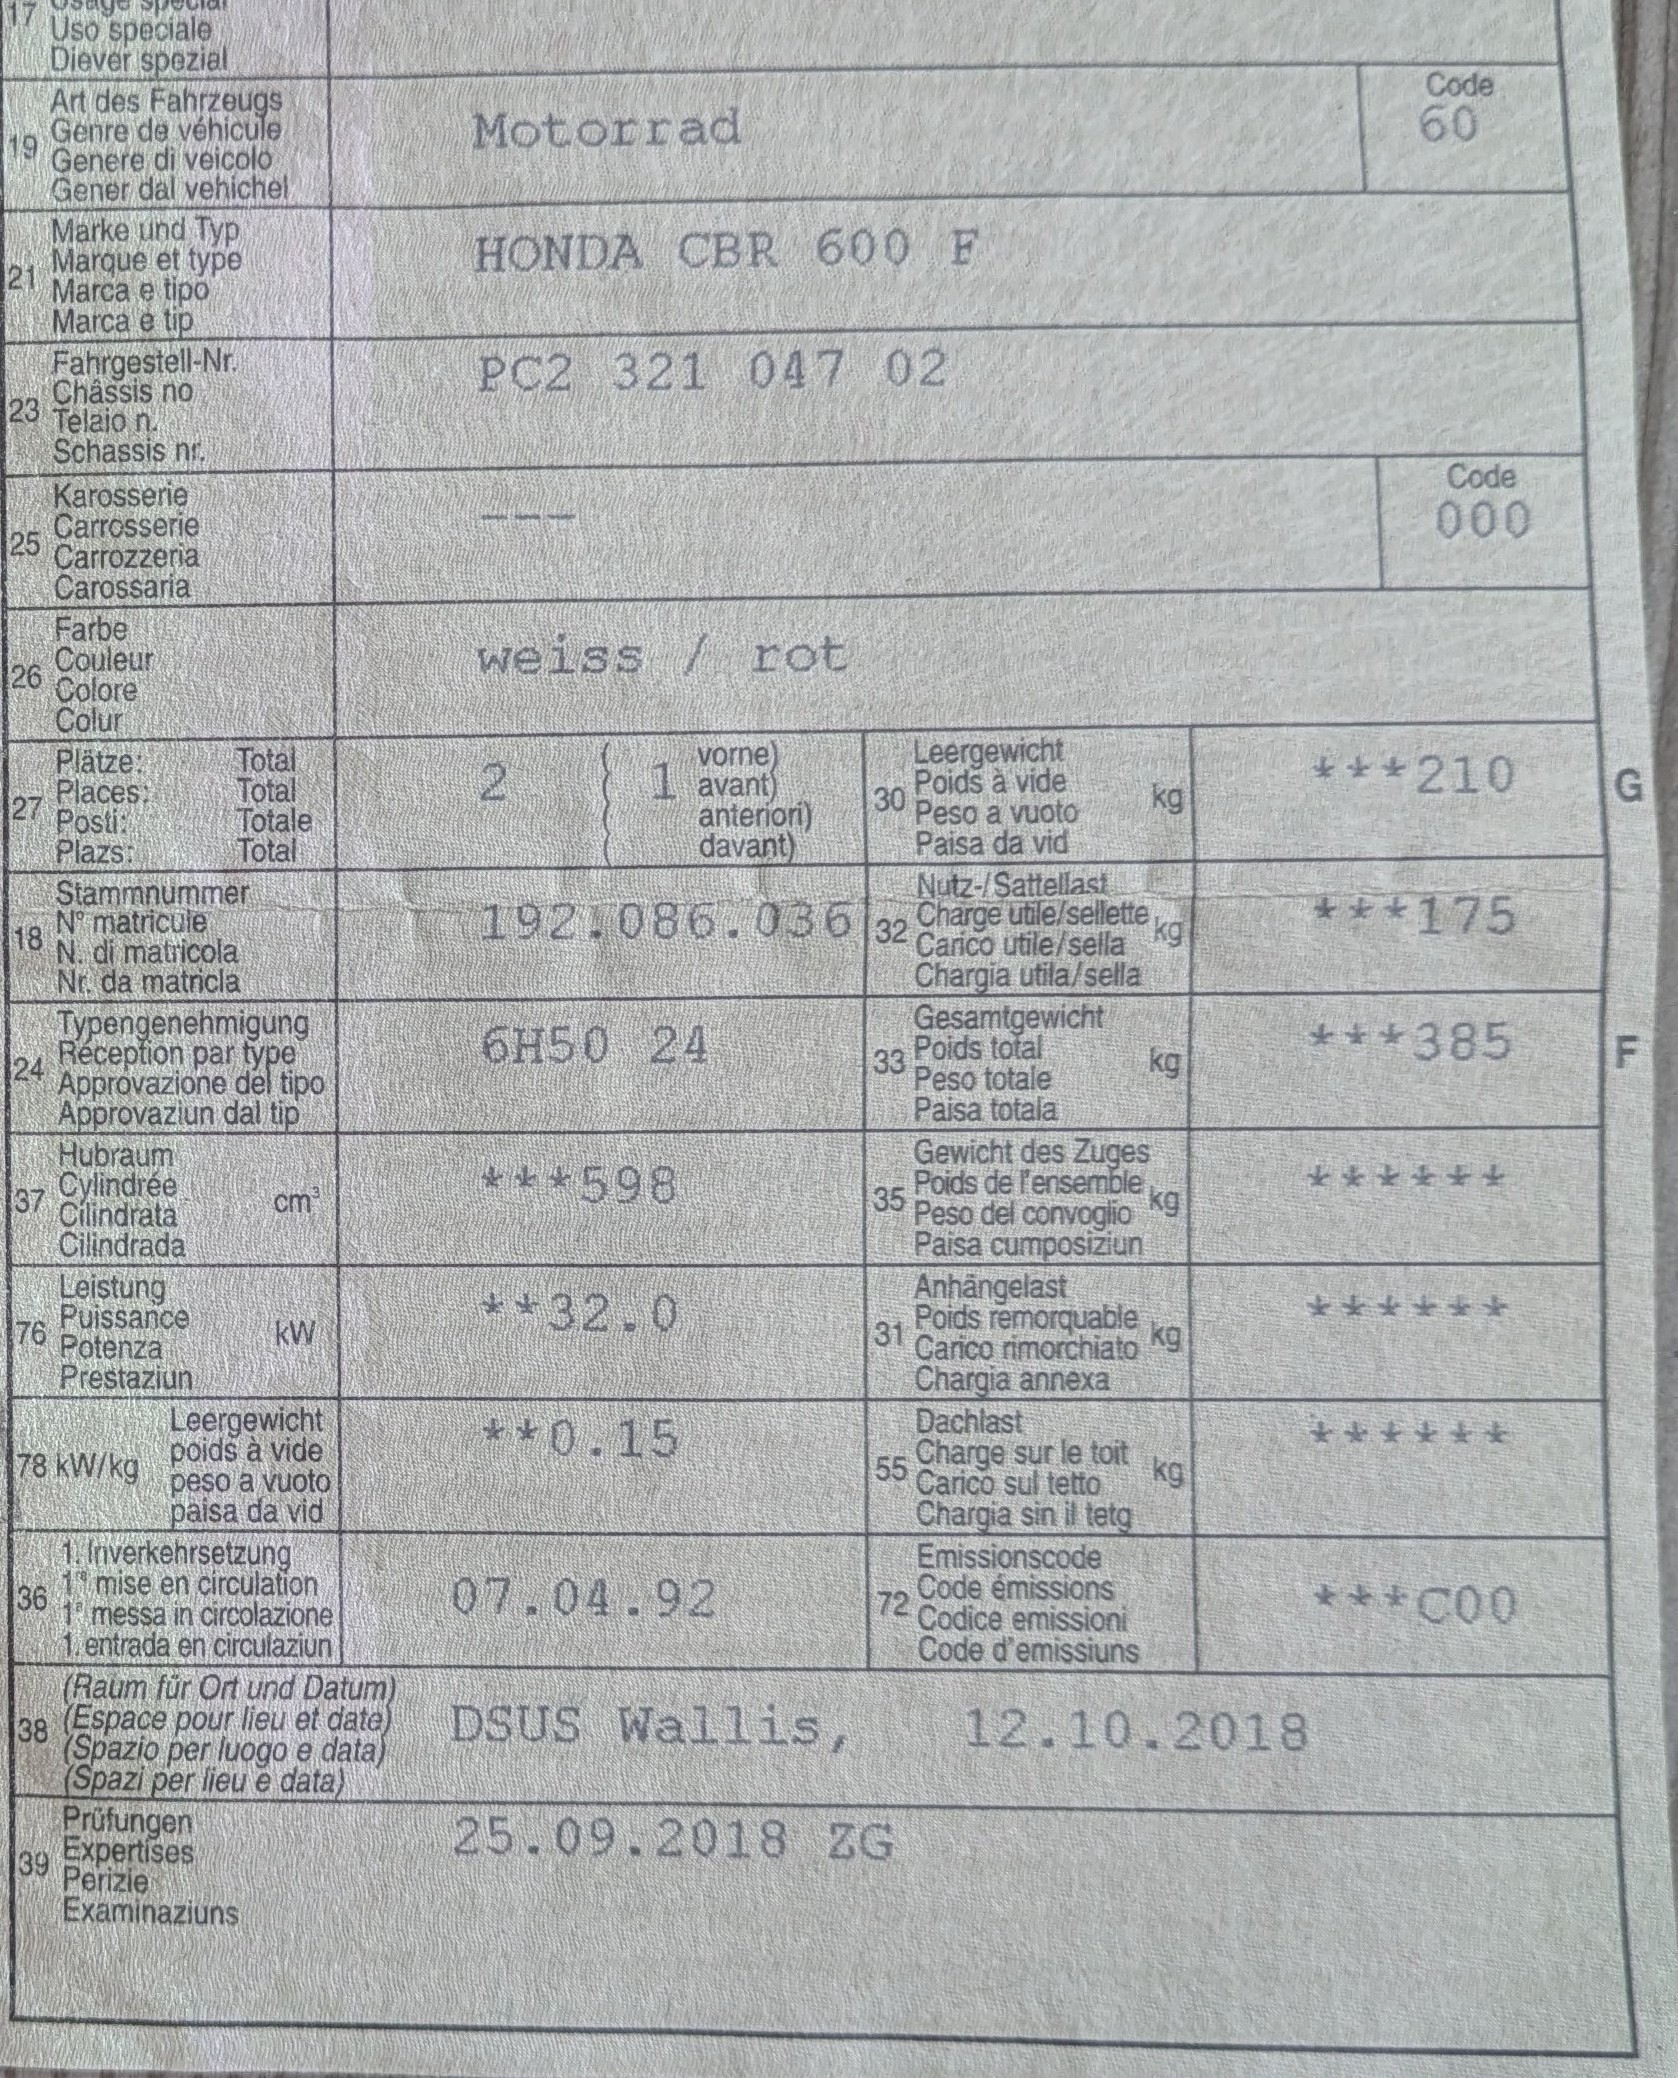 17 Usage spécial
Uso speciale
Diever spezial
19 Art des Fahrzeugs
Genre de véhicule
Genere di veicolo
Gener dal vehichel
Motorrad
Code
60
21 Marke und Typ
Marque et type
Marca e tipo
Marca e tip
HONDA CBR 600 F
23 Fahrgestell-Nr.
Châssis no
Telaio n.
Schassis nr.
PC2 321 047 02
25 Karosserie
Carrosserie
Carrozzeria
Carossaria
---
Code
000
26 Farbe
Couleur
Colore
Colur
weiss / rot
27 Plätze: Total
Places: Total
Posti: Totale
Plazs: Total
2 ( 1 vorne)
avant)
anteriori)
davant)
30 Leergewicht
Poids à vide
Peso a vuoto
Paisa da vid
kg
***210
G
18 Stammnummer
N° matricule
N. di matricola
Nr. da matricla
192.086.036
32 Nutz-/Sattellast
Charge utile/sellette
Carico utile/sella
Chargia utila/sella
kg
***175
24 Typengenehmigung
Réception par type
Approvazione del tipo
Approvaziun dal tip
6H50 24
33 Gesamtgewicht
Poids total
Peso totale
Paisa totala
kg
***385
F
37 Hubraum
Cylindrée
Cilindrata
Cilindrada
cm³
***598
35 Gewicht des Zuges
Poids de l'ensemble
Peso del convoglio
Paisa cumposiziun
kg
******
76 Leistung
Puissance
Potenza
Prestaziun
kW
**32.0
31 Anhängelast
Poids remorquable
Carico rimorchiato
Chargia annexa
kg
******
78 kW/kg
Leergewicht
poids à vide
peso a vuoto
paisa da vid
**0.15
55 Dachlast
Charge sur le toit
Carico sul tetto
Chargia sin il tetg
kg
******
36 1. Inverkehrsetzung
1e mise en circulation
1a messa in circolazione
1. entrada en circulaziun
07.04.92
72 Emissionscode
Code émissions
Codice emissioni
Code d'emissiuns
***C00
38 (Raum für Ort und Datum)
(Espace pour lieu et date)
(Spazio per luogo e data)
(Spazi per lieu e data)
DSUS Wallis, 12.10.2018
39 Prüfungen
Expertises
Perizie
Examinaziuns
25.09.2018 ZG